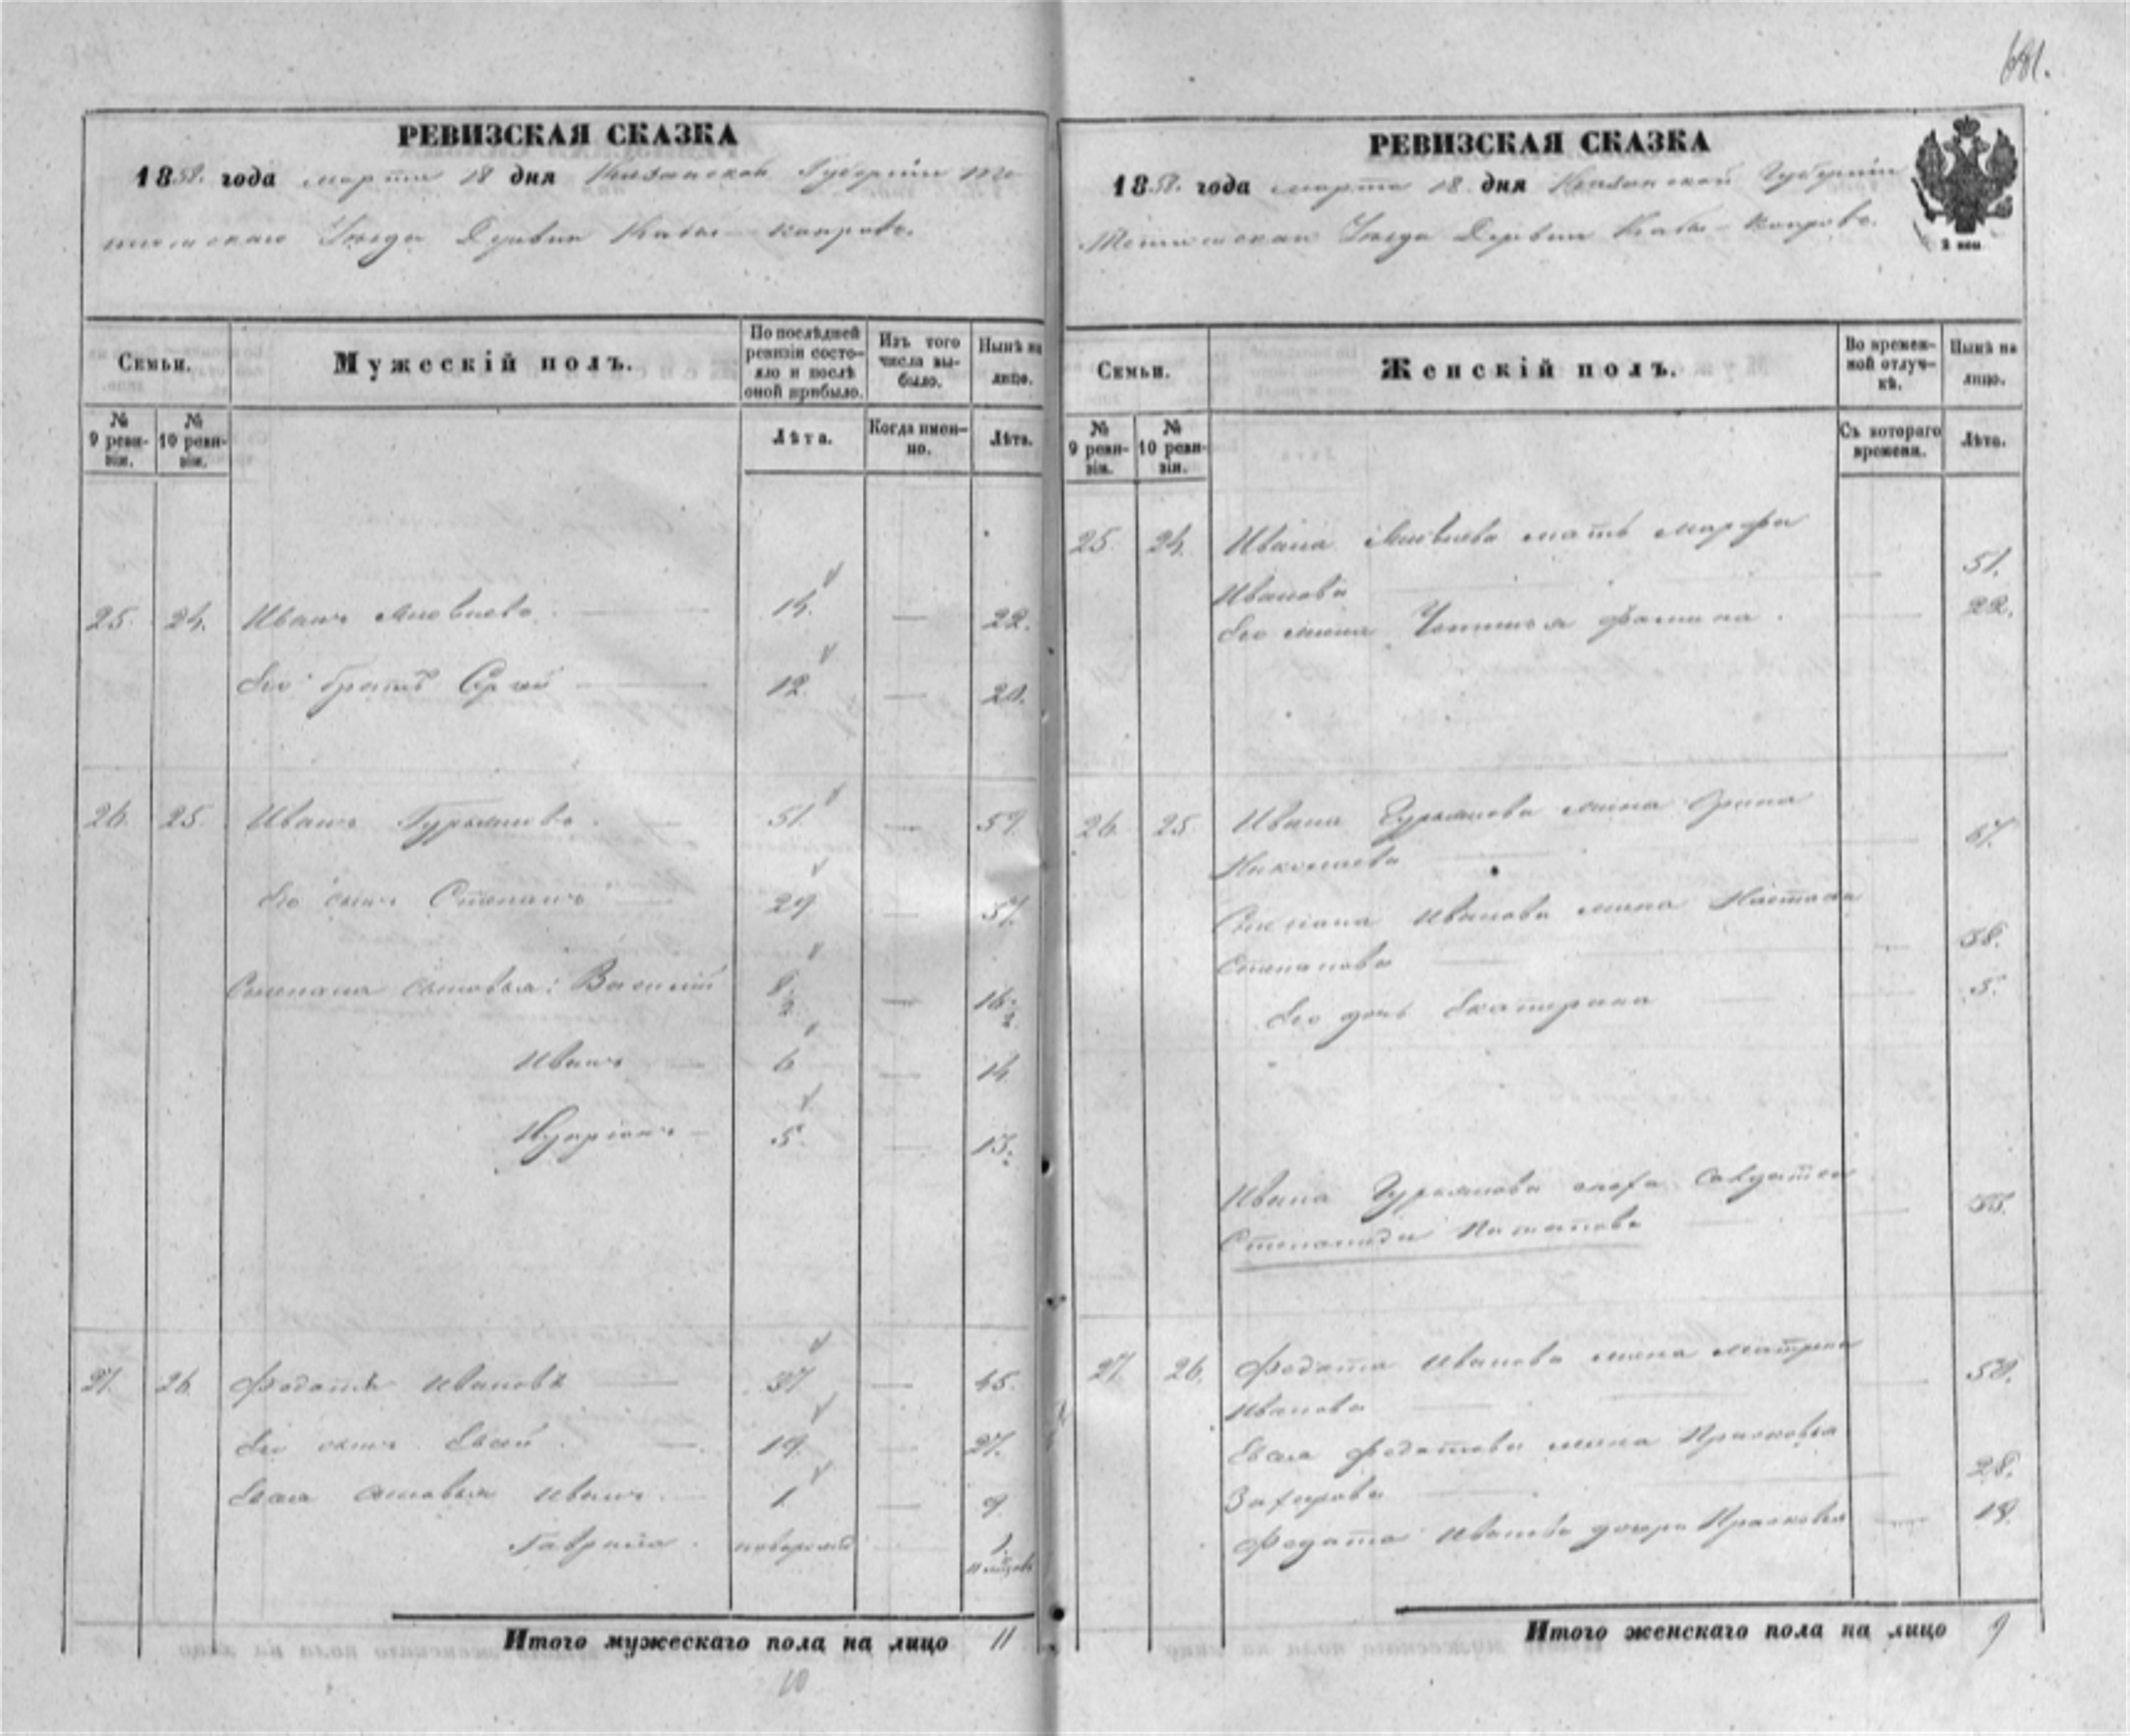 681.
РЕВИЗСКАЯ СКАЗКА
1858. года марта 18 дня Казанской Губерніи Те
тюшскаго Уезда Деревни Кабы-Копрове.
Семьи.
Мужескій полъ.
По послѣдней ревизіи состояло и послѣ оной прибыло.
Изъ того числа выбыло.
Нынѣ на лицо.
№ 9 ревизіи.
№ 10 ревизіи.
Лѣта.
Когда именно.
Лѣта.
25. 24. Иванъ Яковлевъ 14. — 22.
Его братъ Сергей 12. — 20.
26. 25. Иванъ Гурьяновъ 51. — 59.
Его сынъ Степанъ 29 — 37.
Степана сыновья: Василий 8 1/2 — 16 1/2
Иванъ 6 — 14
Купріянъ 5. — 13.
27. 26. Федотъ Ивановъ 37 — 45.
Его сынъ Евсей 19. — 27.
Евсея сыновья Иванъ 1 — 9
Гаврила новорожд —
Итого мужескаго пола на лицо 11
10
РЕВИЗСКАЯ СКАЗКА
1858. года марта 18 дня Казанской Губерніи
Тетюшской Уезда Деревни Кабы-Копрове.
2 коп
Семьи.
Женскій полъ.
Во временной отлучкѣ.
Нынѣ на лицо.
№ 9 ревизіи.
№ 10 ревизіи.
Съ котораго времени.
Лѣта.
25. 24. Ивана Яковлева мать Марфа
Иванова — 51.
Его жена Фомина — 22.
26. 25. Ивана Гурьянова жена Орина
Николаева — 67.
Степана Иванова жена Настасья
Степанова — 38.
Его дочь Екатерина — 5.
Ивана Гурьянова сноха Солдатка
Степанида Потапова — 35.
27. 26. Федота Иванова жена Матрена
Иванова — 50.
Евсея Федотова жена Прасковья
Захарова — 28.
Федота Иванова дочери Прасковья — 18.
Итого женскаго пола на лицо 9